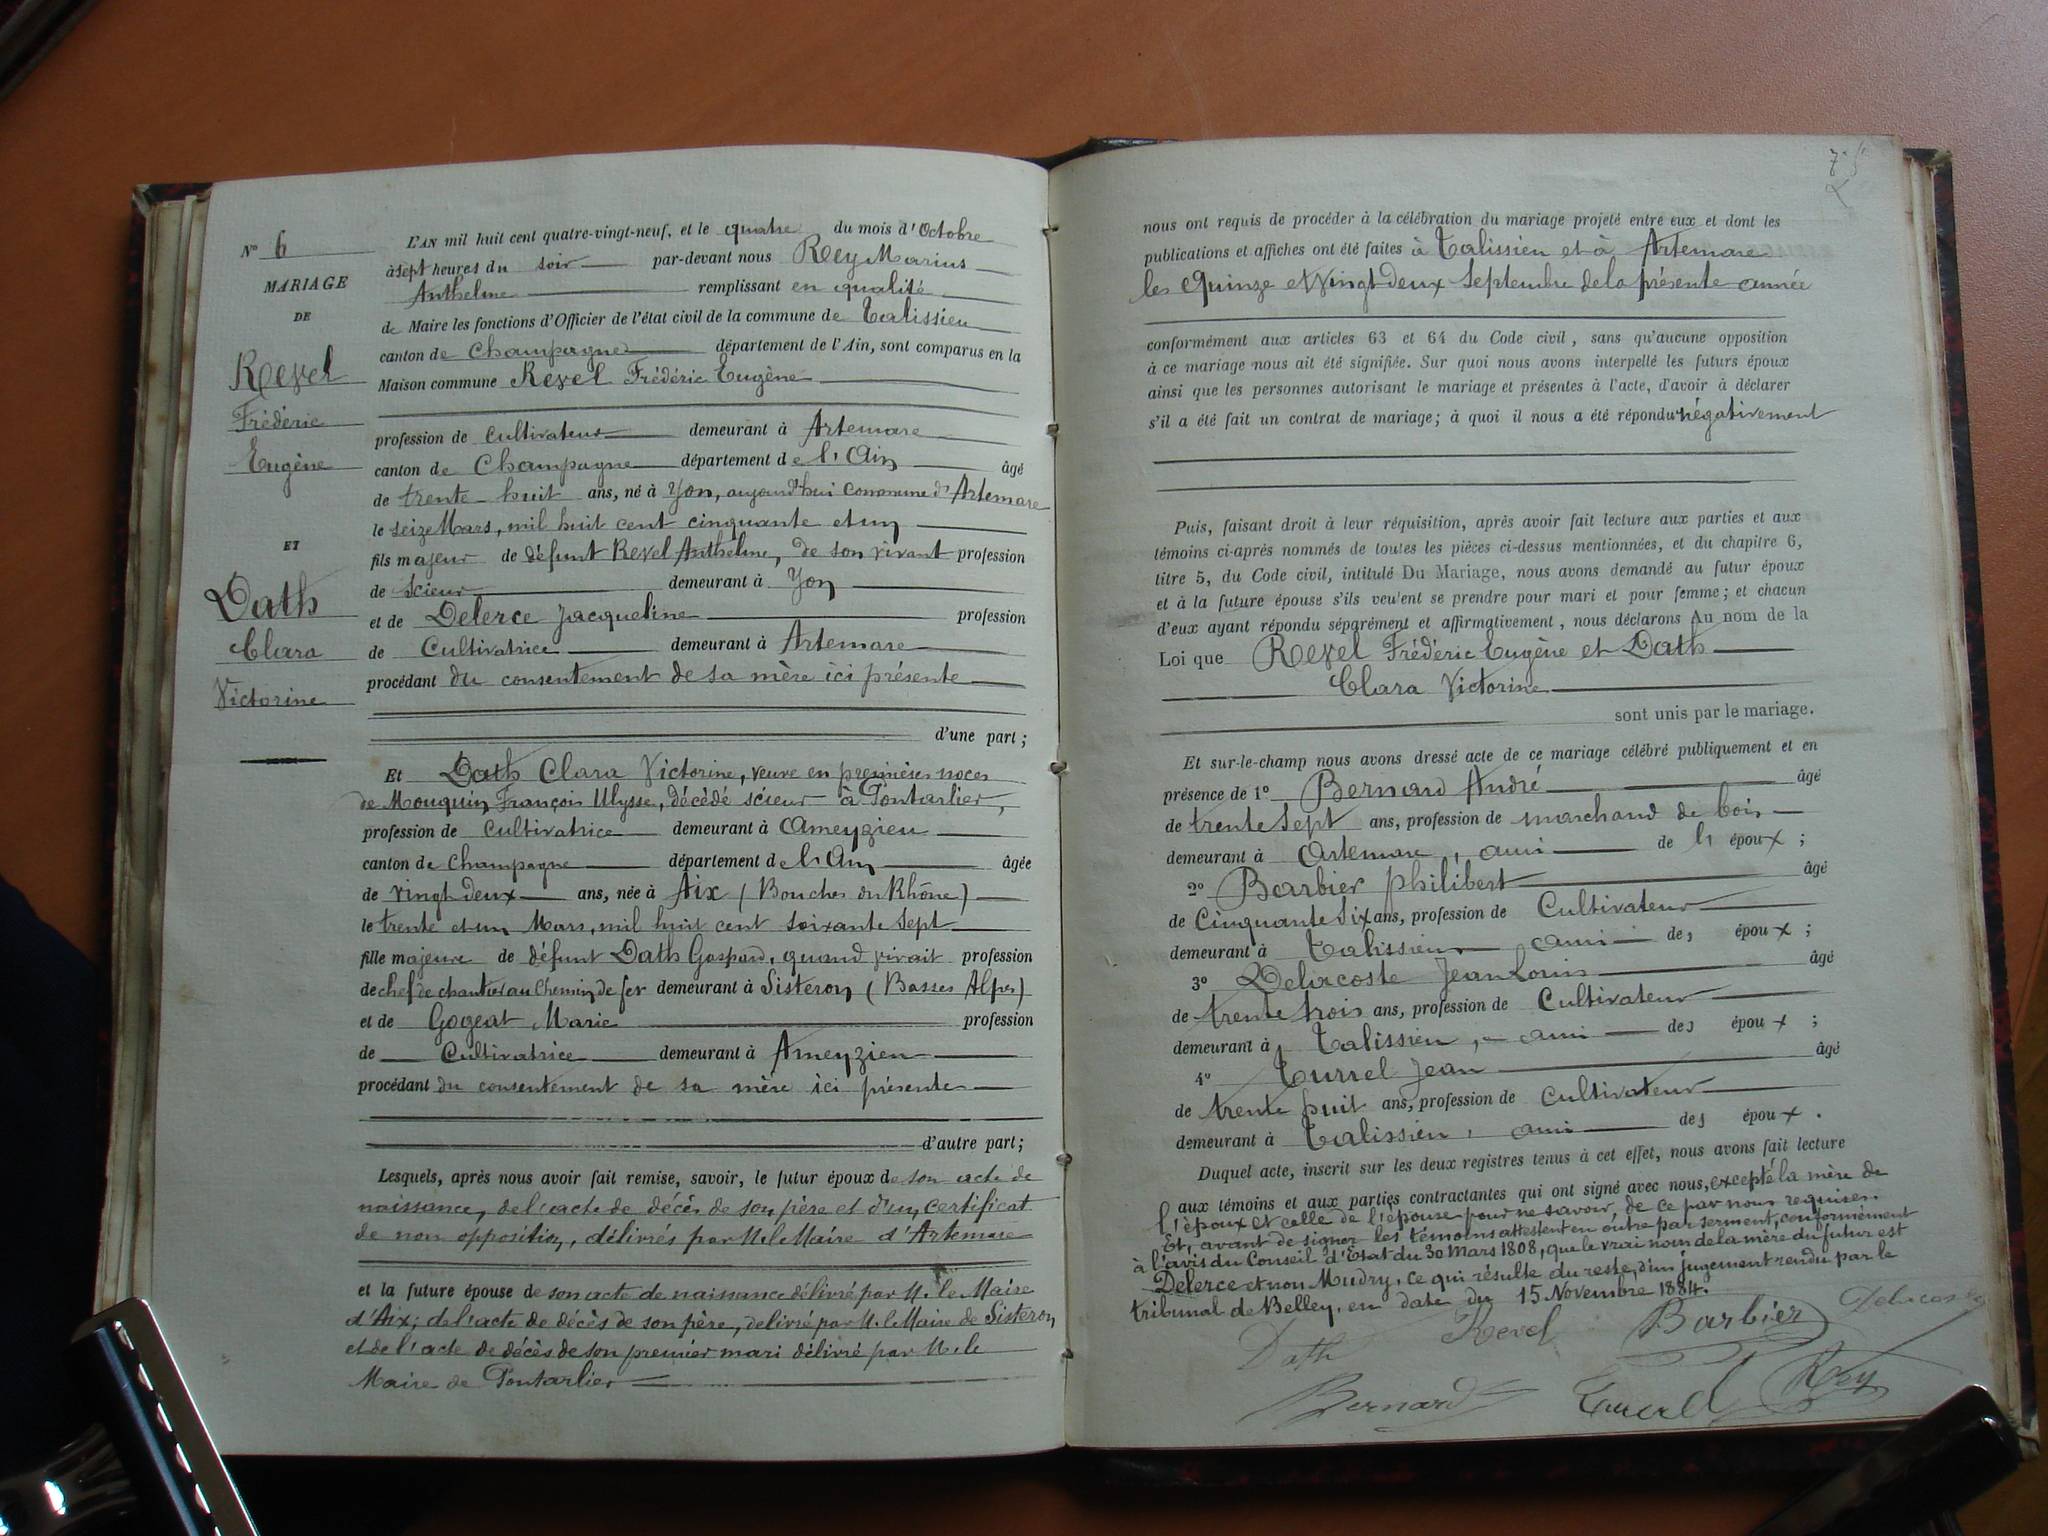 N° 6
MARIAGE
DE
Revel
Frédéric
Eugène
ET
Dath
Clara
Victorine
L'AN mil huit cent quatre-vingt-neuf, et le quatre du mois d'Octobre
à sept heures du soir par-devant nous Rey Marius
Anthelme remplissant en qualité
de Maire les fonctions d'Officier de l'état civil de la commune de Talissieu
canton de Champagne département de l'Ain, sont comparus en la
Maison commune Revel Frédéric Eugène
profession de cultivateur demeurant à Artemare
canton de Champagne département de l'Ain âgé
de trente-huit ans, né à Yon, aujourd'hui commune d'Artemare
le seize Mars, mil huit cent cinquante et un
fils majeur de défunt Revel Anthelme, de son vivant profession
de scieur demeurant à Yon
et de Delerce Jacqueline profession
de Cultivatrice demeurant à Artemare
procédant du consentement de sa mère ici présente
d'une part ;
Et Dath Clara Victorine, veuve en premières noces
de Mouquin François Ulysse, décédé scieur à Pontarlier,
profession de cultivatrice demeurant à Ameyzieu
canton de Champagne département de l'Ain âgée
de vingt-deux ans, née à Aix (Bouches du Rhône)
le trente et un Mars, mil huit cent soixante sept
fille majeure de défunt Dath Gaspard, quand vivait profession
de chef de chantier au Chemin de fer demeurant à Sisteron (Basses Alpes)
et de Gogeat Marie profession
de Cultivatrice demeurant à Ameyzieu
procédant du consentement de sa mère ici présente
d'autre part ;
Lesquels, après nous avoir fait remise, savoir, le futur époux de son acte de
naissance, de l'acte de décès de son père et d'un certificat
de non opposition, délivrés par M. le Maire d'Artemare
et la future épouse de son acte de naissance délivré par M. le Maire
d'Aix ; de l'acte de décès de son père, délivré par M. le Maire de Sisteron
et de l'acte de décès de son premier mari délivré par M. le
Maire de Pontarlier
nous ont requis de procéder à la célébration du mariage projeté entre eux et dont les
publications et affiches ont été faites à Talissieu et à Artemare
les Quinze et Vingt-deux Septembre de la présente année
conformément aux articles 63 et 64 du Code civil, sans qu'aucune opposition
à ce mariage nous ait été signifiée. Sur quoi nous avons interpellé les futurs époux
ainsi que les personnes autorisant le mariage et présentes à l'acte, d'avoir à déclarer
s'il a été fait un contrat de mariage ; à quoi il nous a été répondu négativement
Puis, faisant droit à leur réquisition, après avoir fait lecture aux parties et aux
témoins ci-après nommés de toutes les pièces ci-dessus mentionnées, et du chapitre 6,
titre 5, du Code civil, intitulé Du Mariage, nous avons demandé au futur époux
et à la future épouse s'ils veulent se prendre pour mari et pour femme ; et chacun
d'eux ayant répondu séparément et affirmativement, nous déclarons Au nom de la
Loi que Revel Frédéric Eugène et Dath
Clara Victorine
sont unis par le mariage.
Et sur-le-champ nous avons dressé acte de ce mariage célébré publiquement et en
présence de 1° Bernard André âgé
de trente sept ans, profession de marchand de bois
demeurant à Artemare, ami de l' époux ;
2° Barbier Philibert âgé
de Cinquante Six ans, profession de Cultivateur
demeurant à Talissieu ami des époux ;
3° Delacoste Jean Louis âgé
de trente trois ans, profession de Cultivateur
demeurant à Talissieu, ami des époux ;
4° Turrel Jean âgé
de trente huit ans, profession de Cultivateur
demeurant à Talissieu, ami des époux.
Duquel acte, inscrit sur les deux registres tenus à cet effet, nous avons fait lecture
aux témoins et aux parties contractantes qui ont signé avec nous, excepté la mère de
l'époux et celle de l'épouse pour ne savoir, de ce par nous requises.
Et, avant de signer les témoins attestent en outre par serment, conformément
à l'avis du Conseil d'Etat du 30 Mars 1808, que le vrai nom de la mère du futur est
Delerce et non Mudry, ce qui résulte du reste, d'un jugement rendu par le
tribunal de Belley, en date du 15 Novembre 1884.
Dath Revel Barbier Delacoste
Bernard Turrel Rey